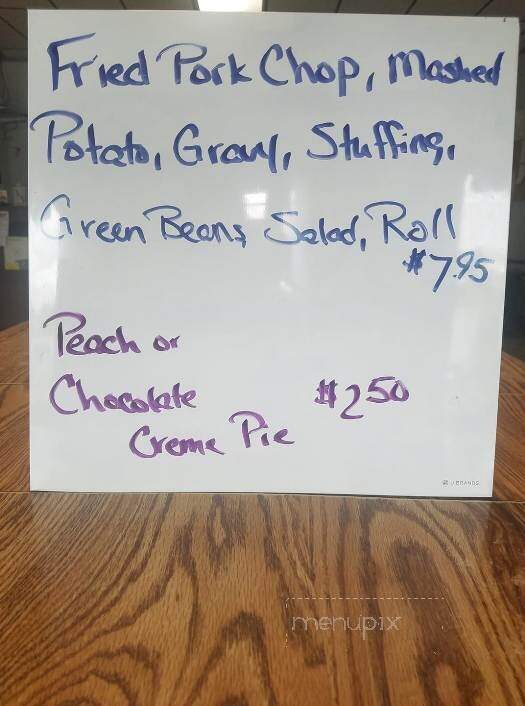 Fried Pork Chop, Mashed
Potato, Gravy, Stuffing,
Green Beans, Salad, Roll
$7.95
Peach or
Chocolate $2.50
Creme Pie
U BRANDS
menupix